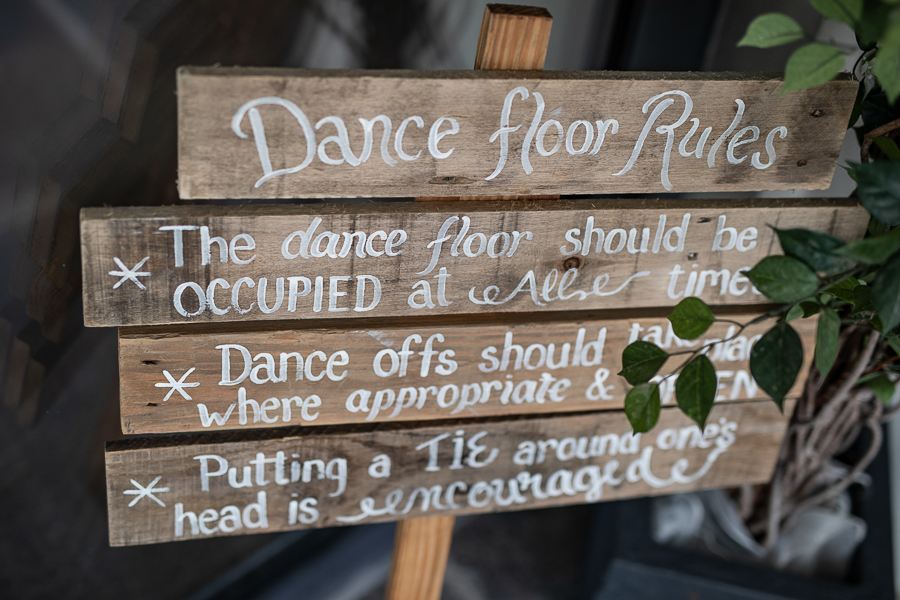 Dance floor Rules
* The dance floor should be
OCCUPIED at All times
* Dance offs should take place
where appropriate &
* Putting a TIE around one's
head is encouraged